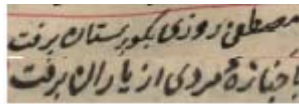 مصطفی روزی بگورستان برفت
با جنازهٔ مردی از یاران برفت